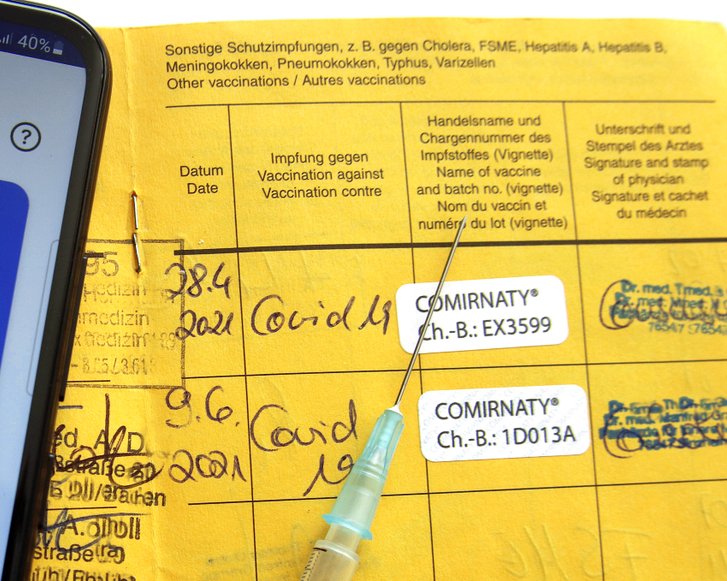 40%
?
Sonstige Schutzimpfungen, z. B. gegen Cholera, FSME, Hepatitis A, Hepatitis B,
Meningokokken, Pneumokokken, Typhus, Varizellen
Other vaccinations / Autres vaccinations
Datum
Date
Impfung gegen
Vaccination against
Vaccination contre
Handelsname und
Chargennummer des
Impfstoffes (Vignette)
Name of vaccine
and batch no. (vignette)
Nom du vaccin et
numéro du lot (vignette)
Unterschrift und
Stempel des Arztes
Signature and stamp
of physician
Signature et cachet
du médecin
28.4
2021
Covid 19
COMIRNATY®
Ch.-B.: EX3599
Dr. med.
Dr. med.
76547
9.6.
2021
Covid
19
COMIRNATY®
Ch.-B.: 1D013A
Dr. med.
95
medizin
straße
straße